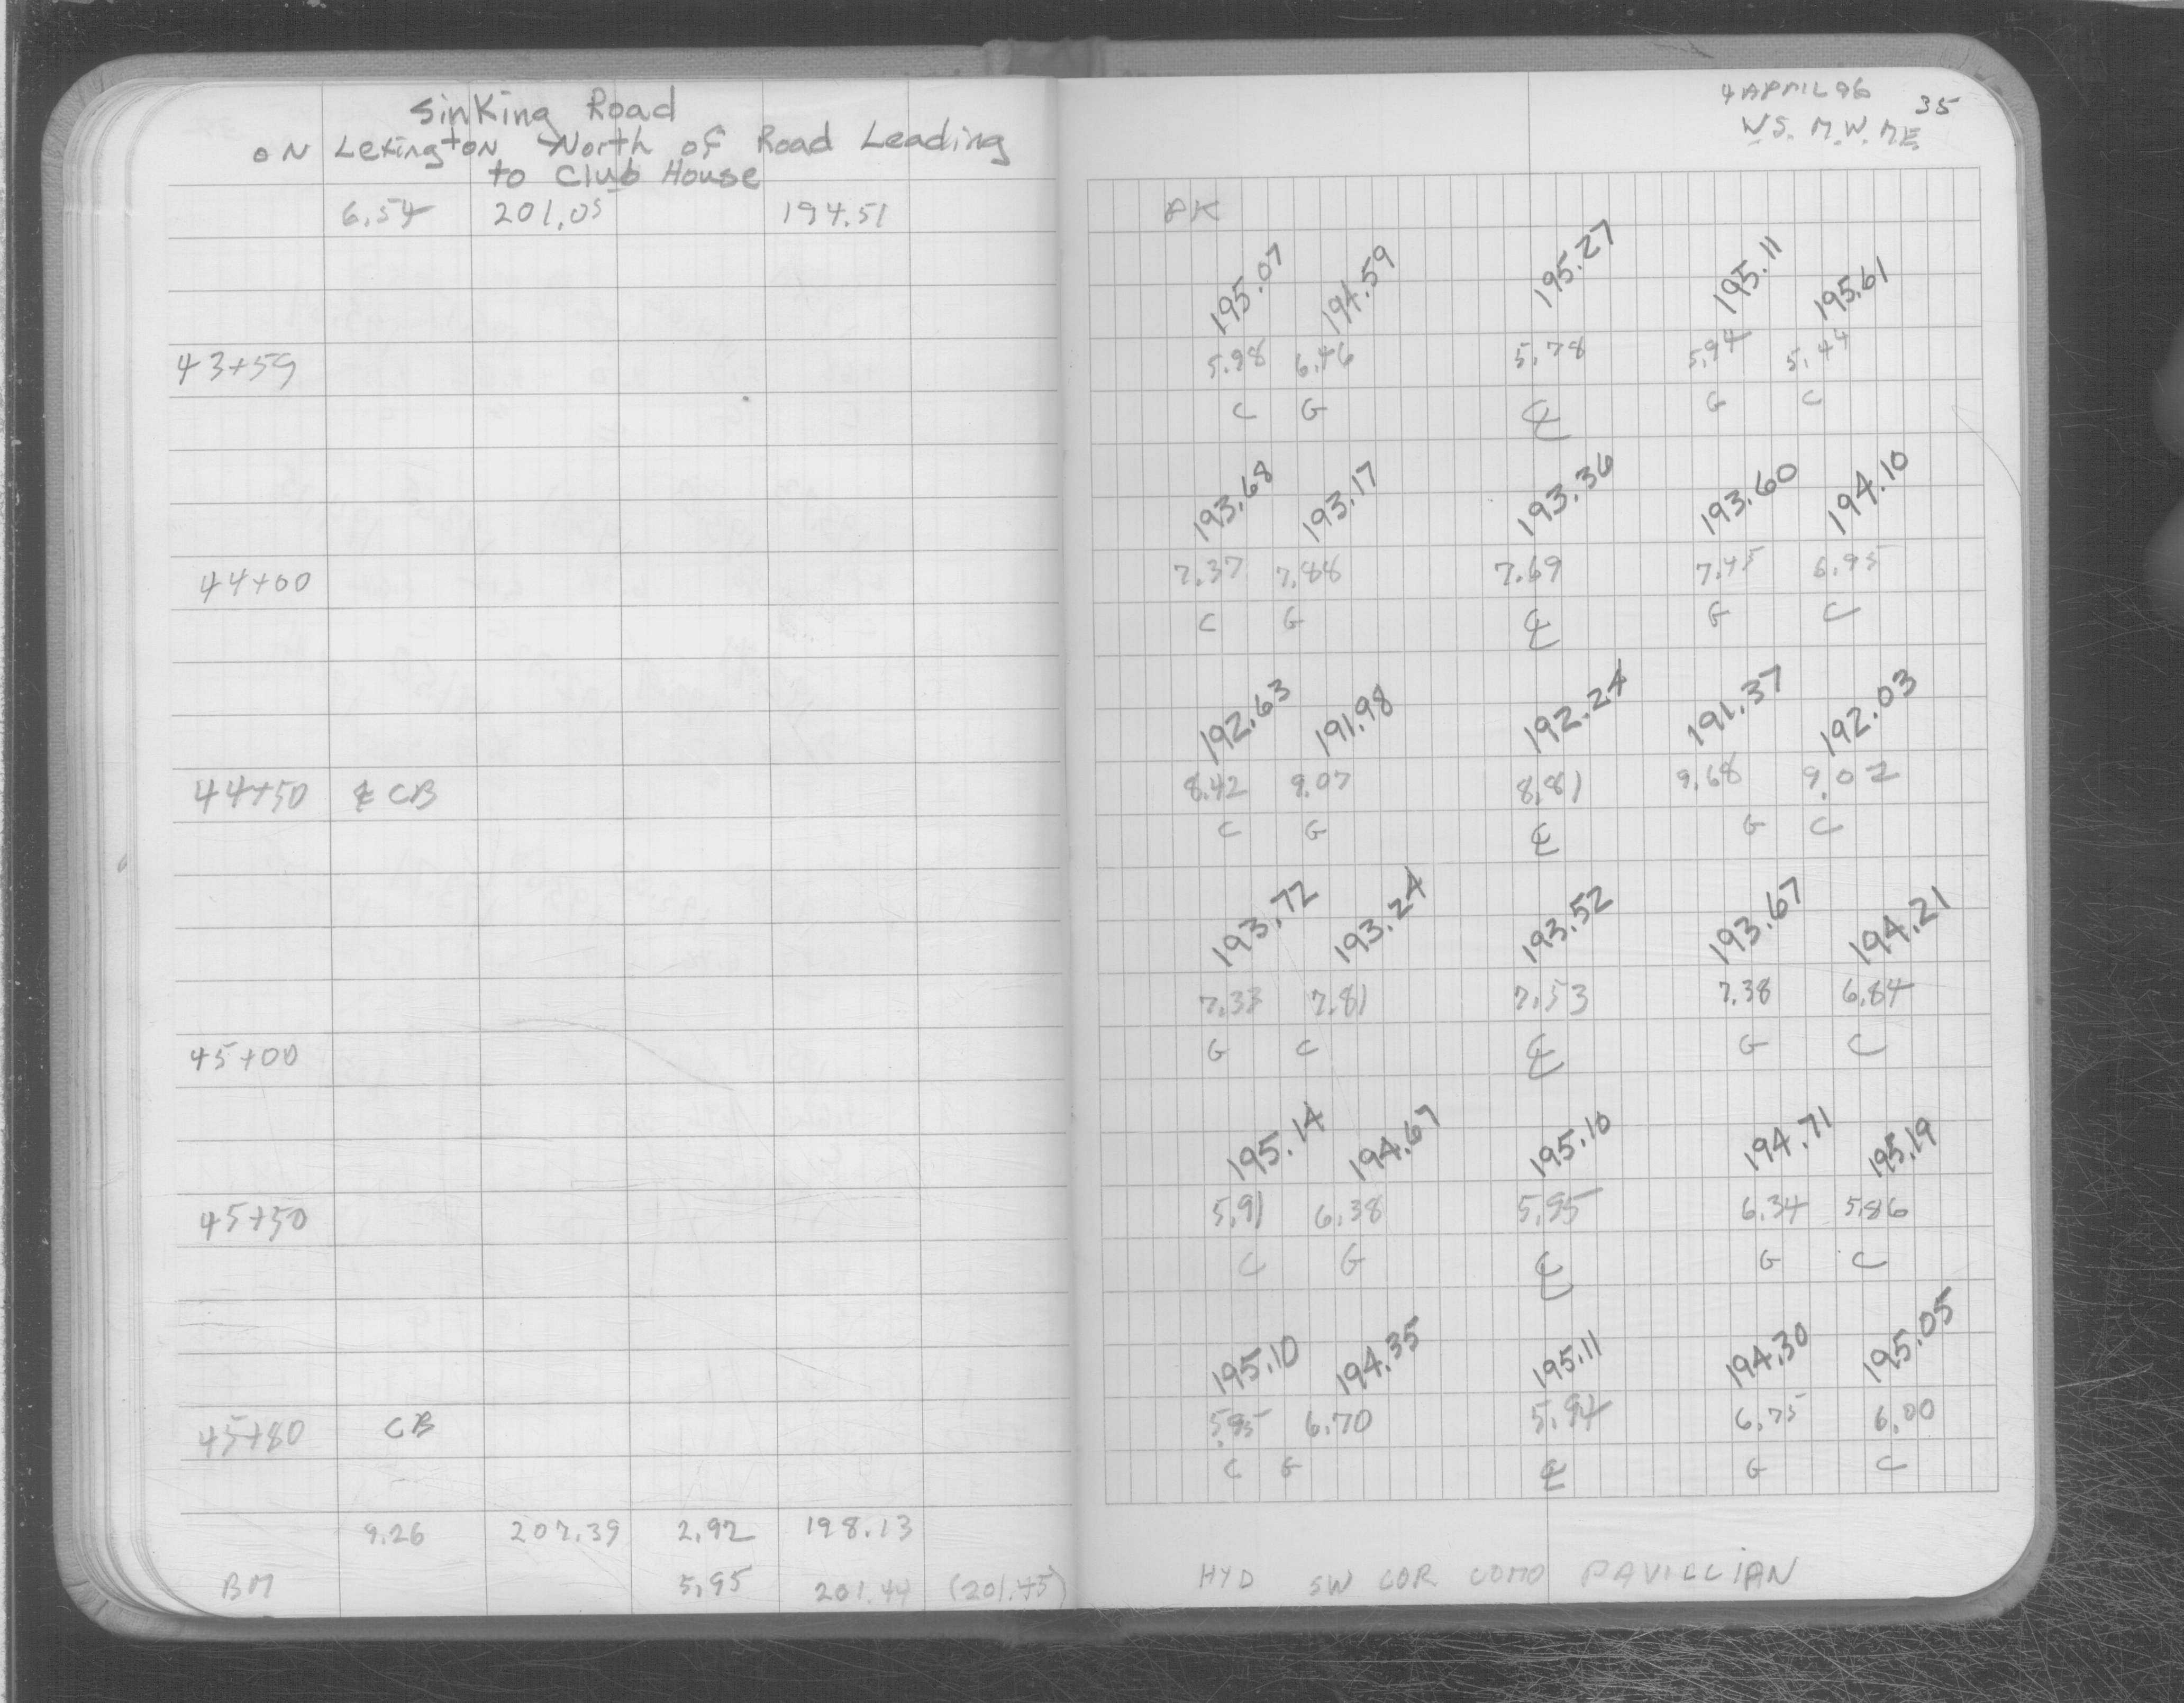 Sinking Road
on Lexington North of Road Leading
to Club House
6.54 201.05 194.51
43+59
44+00
44+50 ℄ CB
45+00
45+50
45+80 CB
9.26 207.39 2.92 198.13
BM 5.95 201.44 (201.45)
4 APRIL 96 35
W.S. M.W. M.E.
PK
195.07 194.59 195.27 195.11 195.61
5.98 6.46 5.78 5.94 5.44
C G ℄ G C
193.68 193.17 193.36 193.60 194.10
7.37 7.88 7.69 7.45 6.95
C G ℄ G C
192.63 191.98 192.24 191.37 192.03
8.42 9.07 8.81 9.68 9.02
C G ℄ G C
193.72 193.24 193.52 193.67 194.21
7.33 7.81 7.53 7.38 6.84
G C ℄ G C
195.14 194.67 195.10 194.71 195.19
5.91 6.38 5.95 6.34 5.86
C G ℄ G C
195.10 194.35 195.11 194.30 195.05
5.95 6.70 5.94 6.75 6.00
C G ℄ G C
HYD SW COR COMO PAVILLIAN